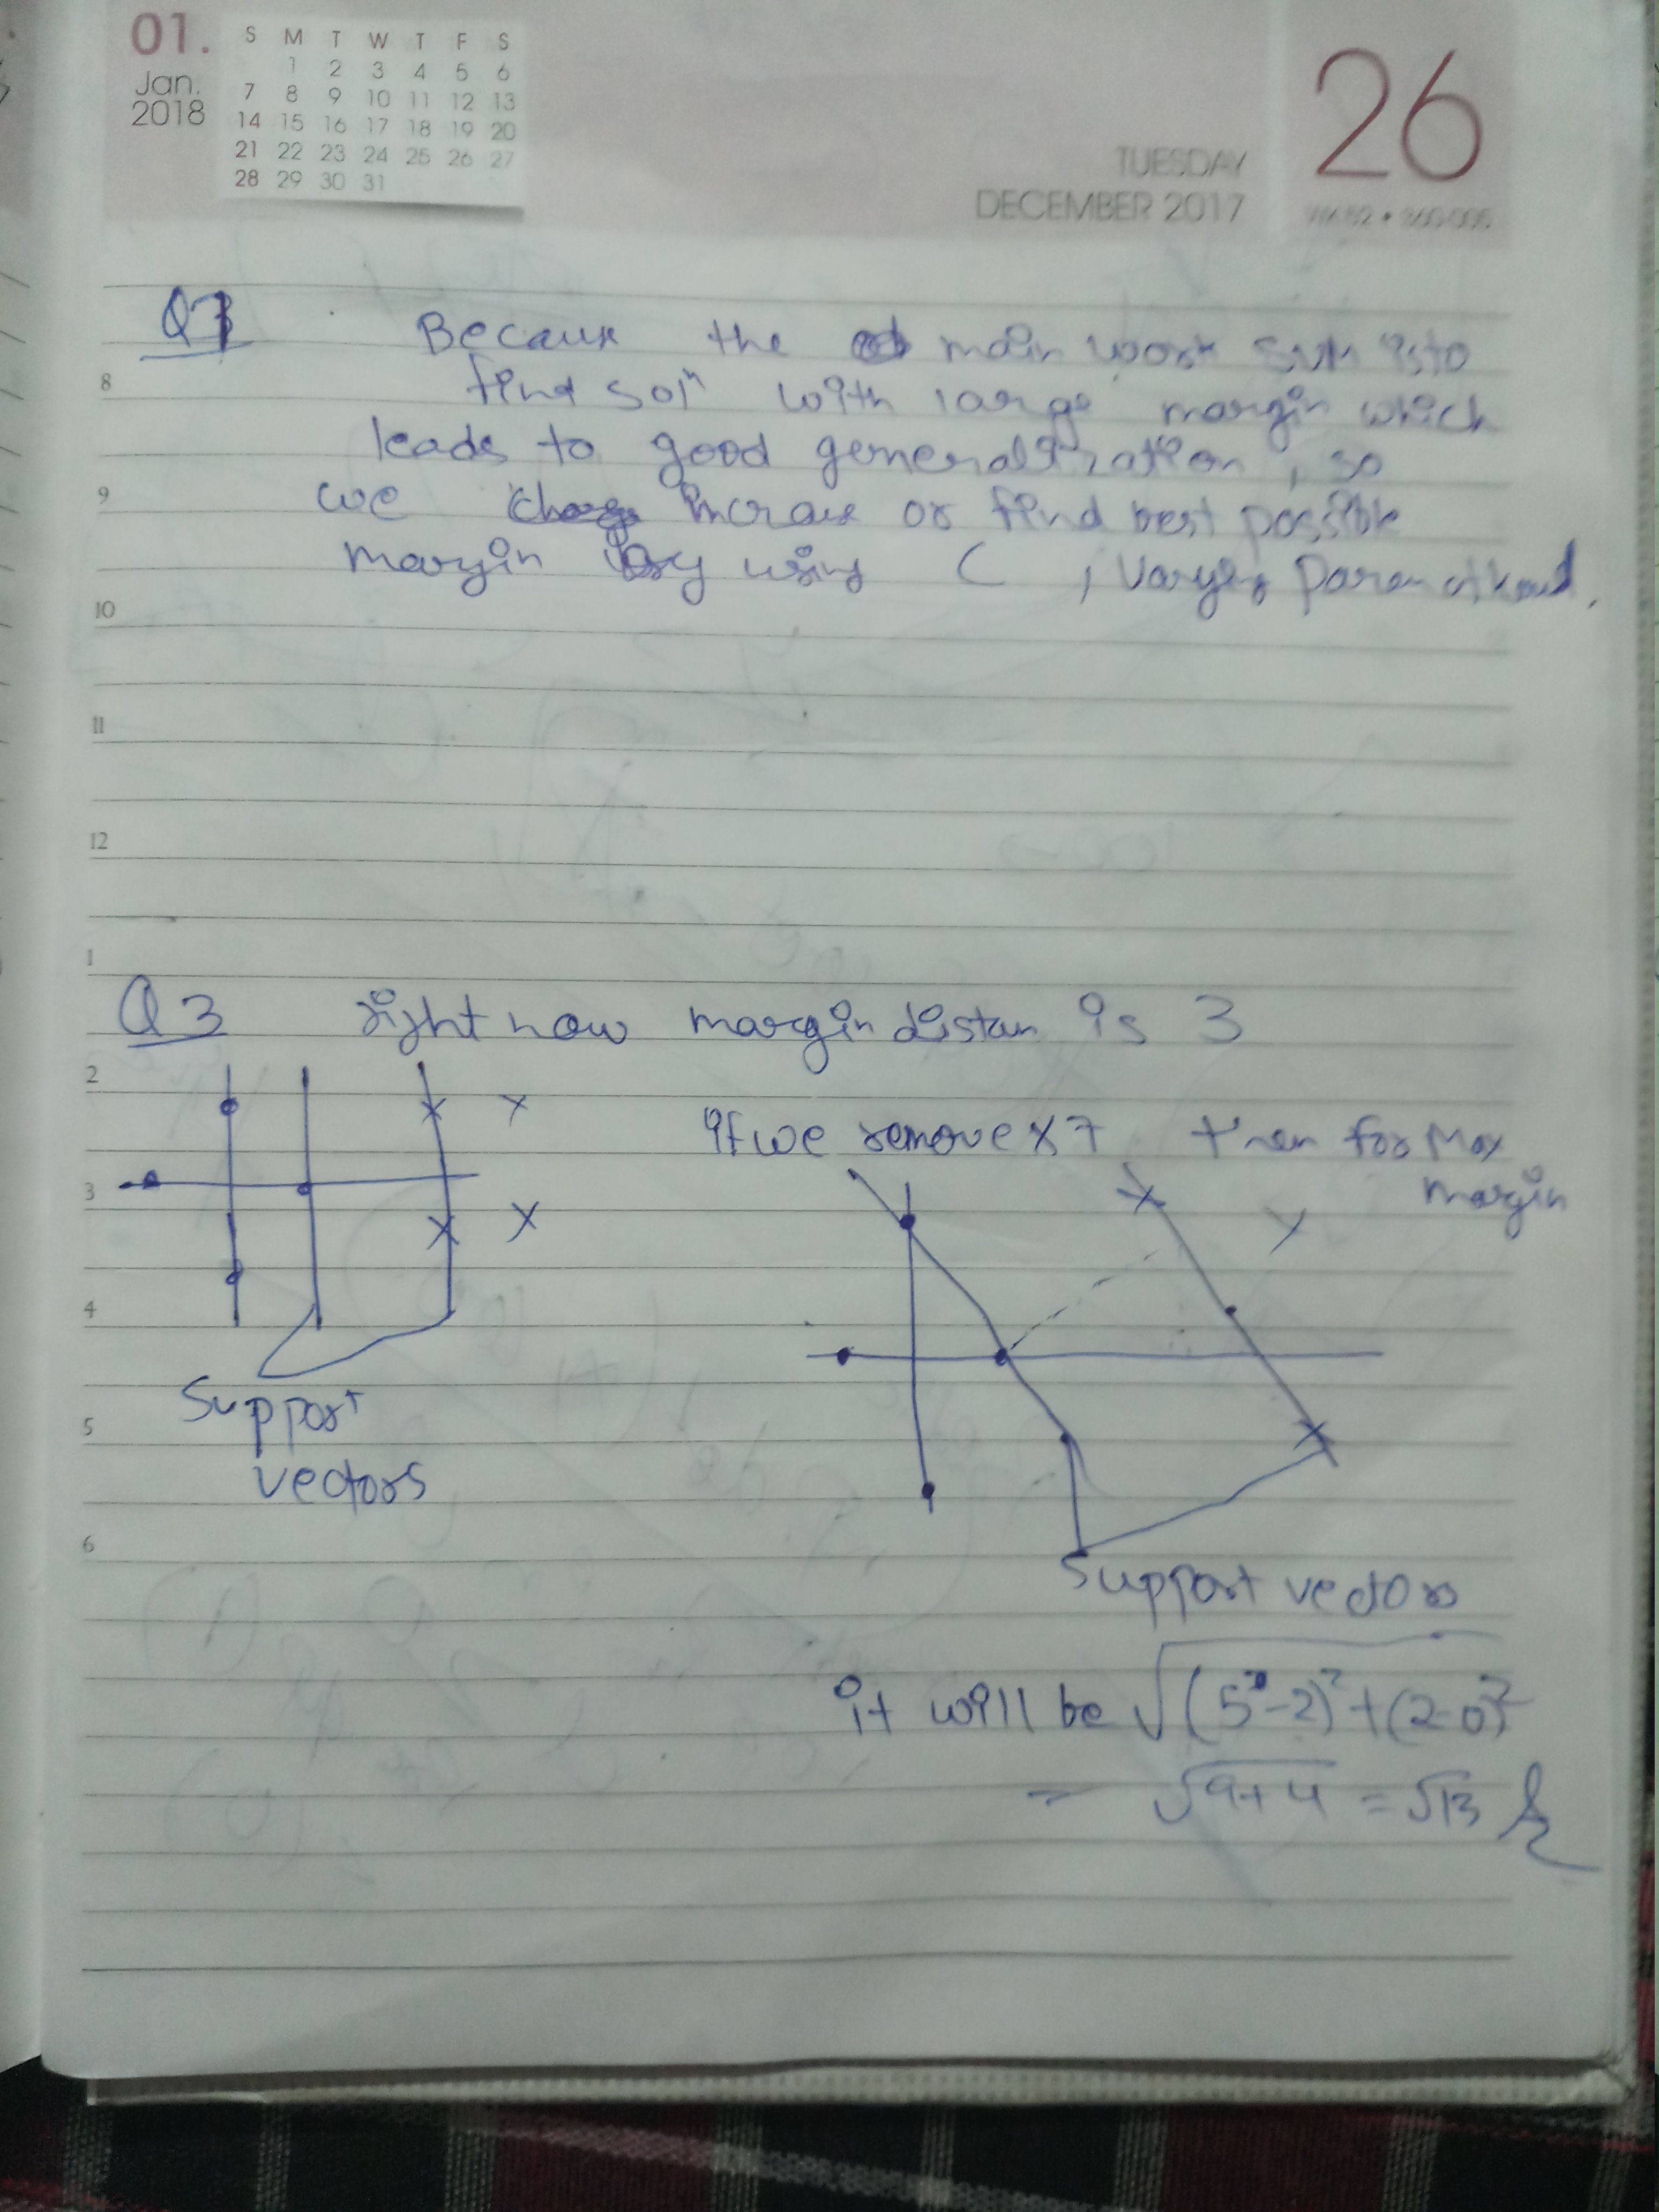 01.
Jan.
2018
S M T W T F S
1 2 3 4 5 6
7 8 9 10 11 12 13
14 15 16 17 18 19 20
21 22 23 24 25 26 27
28 29 30 31
26
TUESDAY
DECEMBER 2017
Because the main work SVM is to
find solⁿ with large margin which
leads to good generalization, so
we increase or find best possible
margin by using C , varying
8
9
10
11
12
1
2
3
4
5
6
Q 3 right now margin distan is 3
if we remove x7 then for Max
margin
Support
vectors
Support vectors
it will be √(5-2)²+(2-0)²
= √9+4 = √13